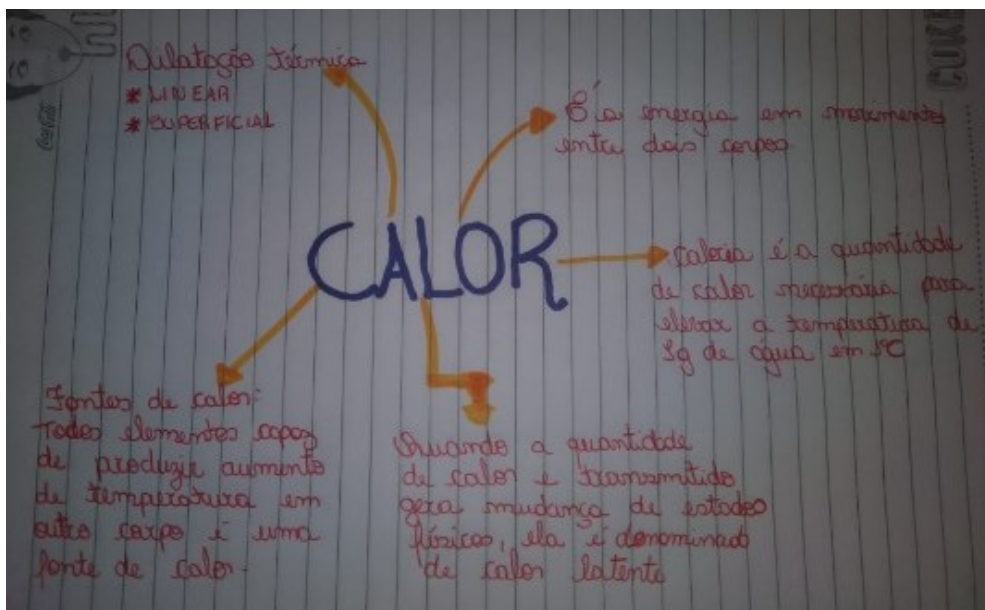 Dilatação térmica
* LINEAR
* SUPERFICIAL
É a energia em movimento
entre dois corpos
CALOR
Caloria é a quantidade
de calor necessária para
elevar a temperatura de
1g de água em 1°C
Fontes de calor:
Todos elementos capaz
de produzir aumento
de temperatura em
outro corpo é uma
fonte de calor.
Quando a quantidade
de calor e transmitido
gera mudança de estados
físicos, ela é denominado
de calor latente